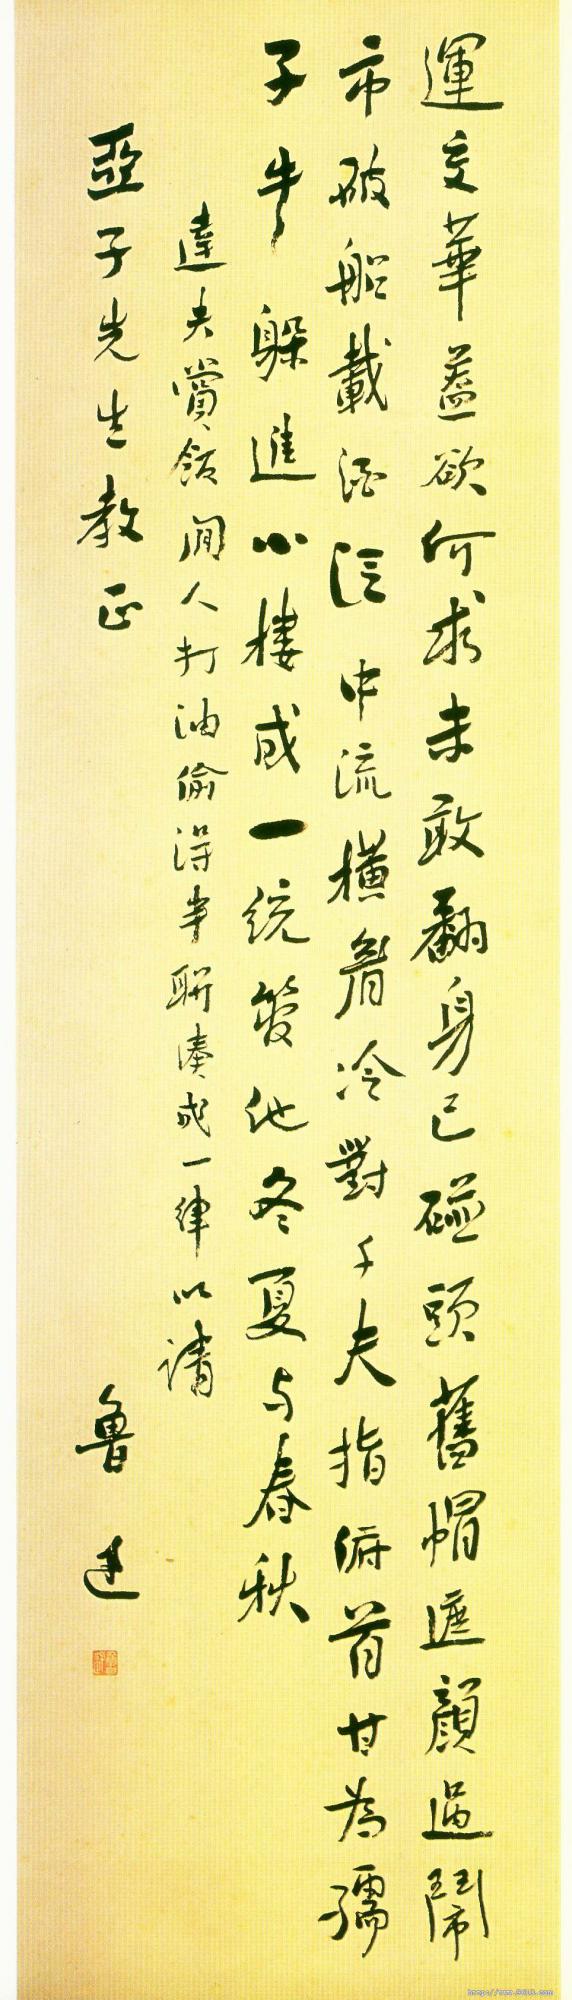 運交華蓋欲何求未敢翻身已碰頭舊帽遮顏過鬧
市破船載酒泛中流橫眉冷對千夫指俯首甘為孺
子牛躲進小樓成一統管他冬夏與春秋
達夫賞飯閒人打油偷得半聯湊成一律以請
亞子先生教正
魯迅